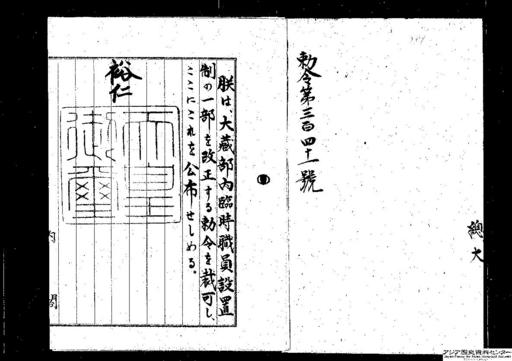 勅令第三百四十一號
總大
朕は、大藏部內臨時職員設置
制の一部を改正する勅令を裁可し、
ここにこれを公布せしめる。
裕仁
天皇
御璽
內閣
アジア歴史資料センター